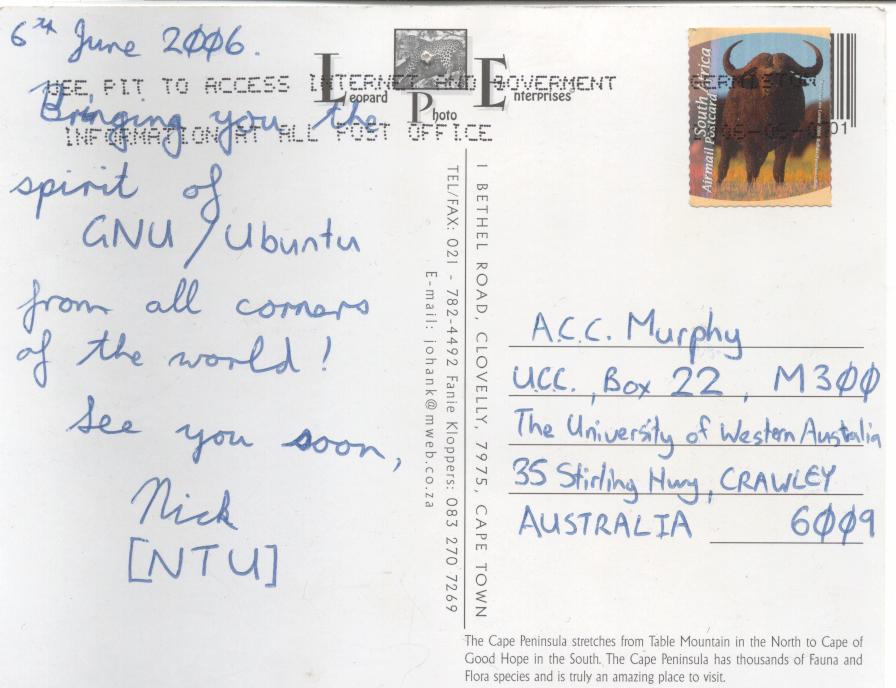 6th June 2006.
Bringing you the
spirit of
GNU / Ubuntu
from all corners
of the world!
See you soon,
Nick
[NTU]
USE PIT TO ACCESS INTERNET AND GOVERMENT
INFORMATION AT ALL POST OFFICE
Leopard
Photo
Enterprises
1 BETHEL ROAD, CLOVELLY, 7975, CAPE TOWN
TEL/FAX: 021 - 782-4492 Fanie Kloppers: 083 270 7269
E-mail: johank@mweb.co.za
South Africa
Airmail Postcard
A.C.C. Murphy
U.C.C., Box 22, M300
The University of Western Australia
35 Stirling Hwy, CRAWLEY
AUSTRALIA 6009
The Cape Peninsula stretches from Table Mountain in the North to Cape of
Good Hope in the South. The Cape Peninsula has thousands of Fauna and
Flora species and is truly an amazing place to visit.